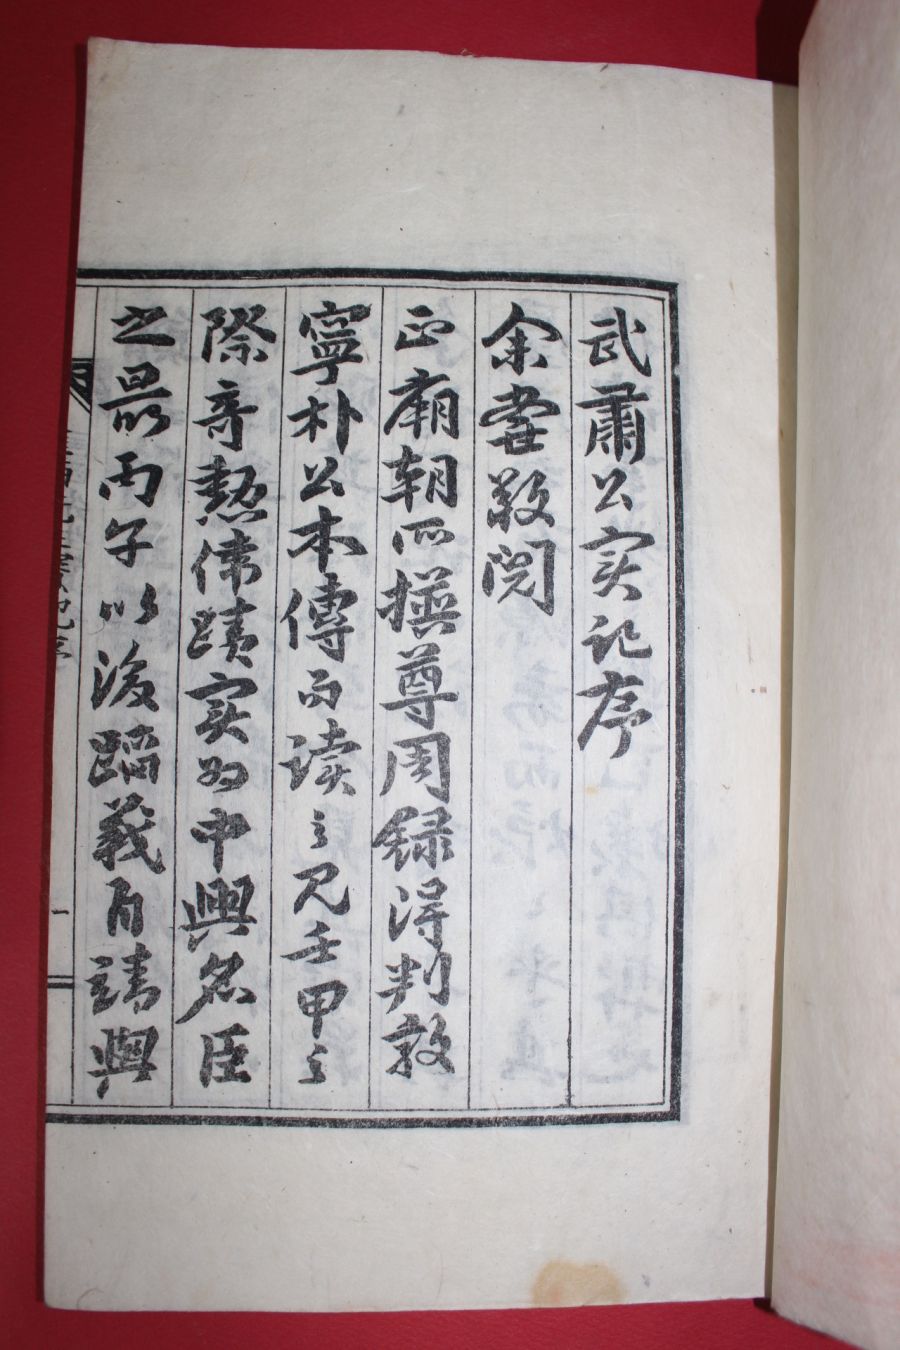 武肅公實記序
余嘗敬閱
正廟朝所撰尊周録得判敦
寧朴公本傳而讀之見壬甲之
際奇勲偉蹟實為中興名臣
之最丙子以後蹈義自靖與
一